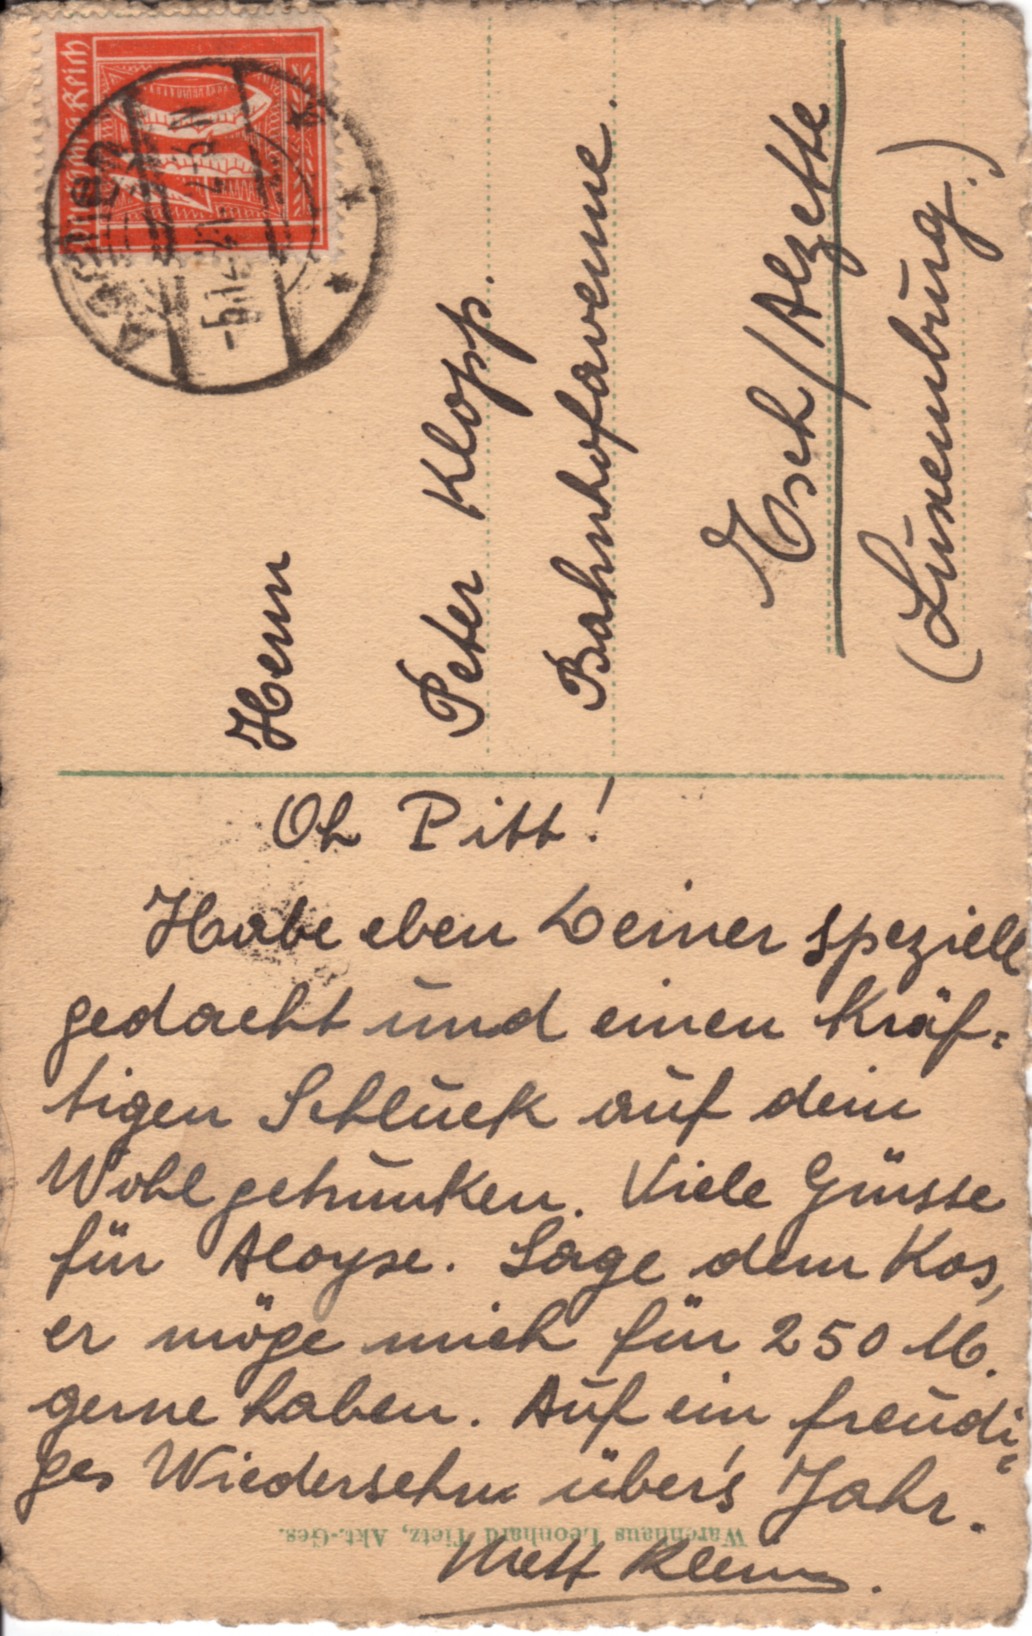 Deutsches Reich
Aachen
-6.12.21.7-8N
Herrn
Peter Klopp.
Bahnhofavenue.
Esch/Alzette
(Luxemburg.)
Oh Pitt!
Habe eben Deiner speziell
gedacht und einen kräf-
tigen Schluck auf dein
Wohl getrunken. Viele Grüsse
für Aloyse. Sage dem Kos,
er möge mich für 250 M.
gerne haben. Auf ein freudi-
ges Wiedersehn über's Jahr.
Warenhaus Leonhard Tietz, Akt.-Ges.
Mett Klein.